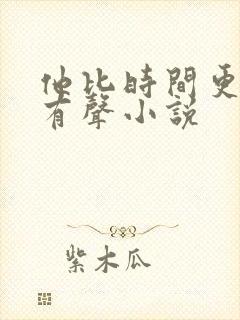 他比時間更
有聲小說
紫木瓜